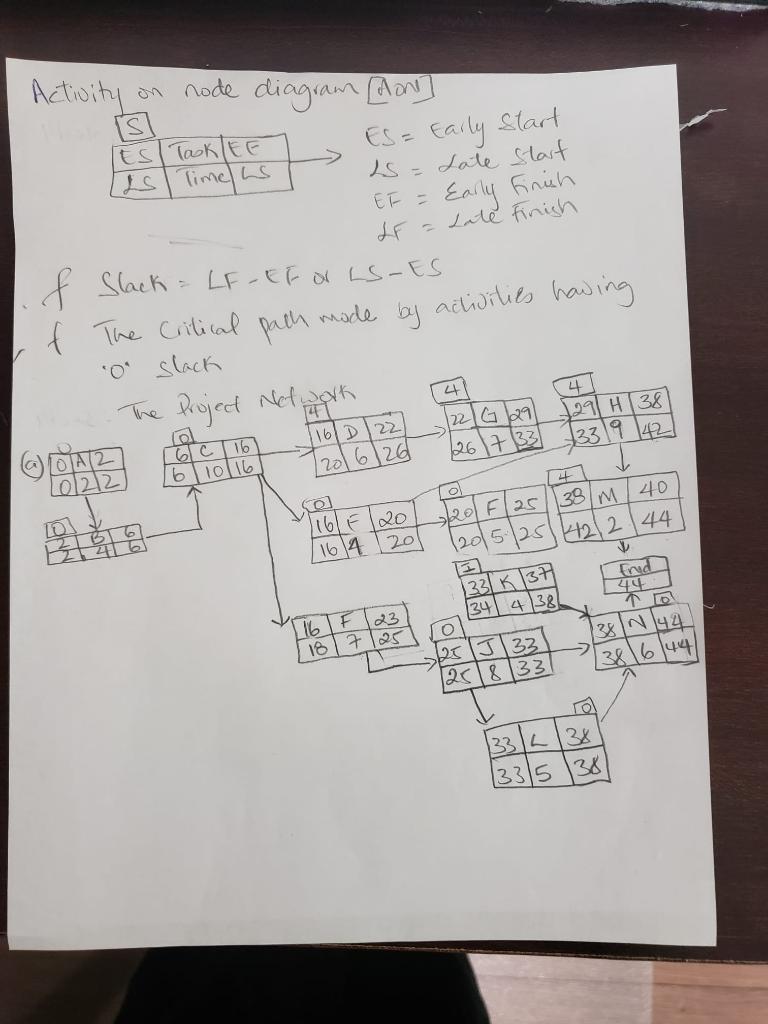 Activity on node diagram [AON]
S
ES Task EF
LS Time LS
ES = Early Start
LS = Late Start
EF = Early Finish
LF = Late Finish
f Slack = LF - EF or LS - ES
f The Critical path mode by activities having
"0" slack
The Project Network
(a)
0
0 A 2
0 2 2
0
2 B 6
2 4 6
0
6 C 16
6 10 16
4
16 D 22
20 6 26
4
22 G 29
26 7 33
4
29 H 38
33 9 42
0
16 E 20
16 4 20
0
20 F 25
20 5 25
4
38 M 40
42 2 44
End
44
1
33 K 37
34 4 38
16 F 23
18 7 25
0
25 J 33
25 8 33
0
38 N 44
38 6 44
0
33 L 38
33 5 38